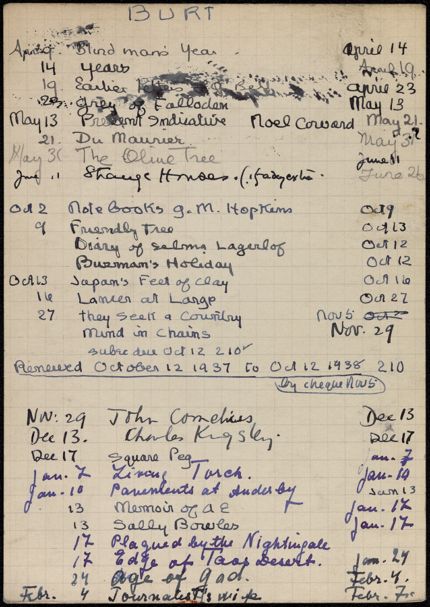 BURT
April 9 Blind man's Year April 14
14 Years April 19
19 Earlier April 23
23 Grey of Falloden May 13
May 13 Present Indicative Noel Coward May 21
21. Du Maurier May 31
May 31 The Olive Tree June 11
June 11 Strange Houses. June 26
Oct 2 Notebooks G. M. Hopkins Oct 9
9 Friendly Tree Oct 13
Diary of Selma Lagerlof Oct 12
Busman's Holiday Oct 12
Oct 13 Japan's Feet of Clay Oct 16
16 Lancer at Large Oct 27
27 They Seek a Country Nov 5
Mind in Chains Nov. 29
subs due Oct 12 210
Renewed October 12 1937 to Oct 12 1938 210
by cheque Nov 5
Nov. 29 John Cornelius Dec 13
Dec 13. Charles Kingsley. Dec 17
Dec 17 Square Peg Jan. 7
Jan. 7 Living Torch. Jan. 10
Jan. 10 Pavements at Anderby Jan 13
13 Memoir of AE Jan. 17
13 Sally Bowles Jan. 17
17 Plagued by the Nightingale
17 Edge of Taos Desert. Jan. 24
24 Age of Gold. Feb. 4.
Febr. 4 Journalist's wife Febr. 7